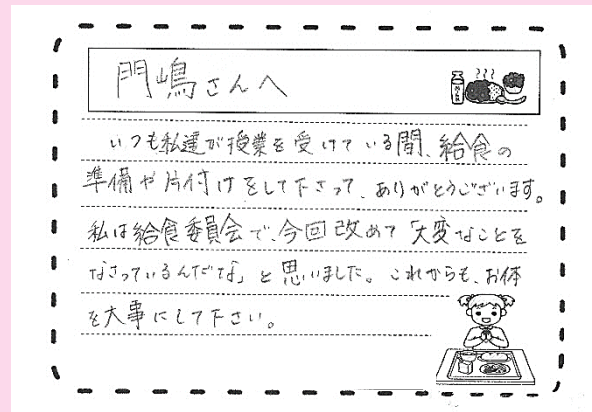 門嶋さんへ
いつも私達が授業を受けている間、給食の
準備や片付けをして下さって、ありがとうございます。
私は給食委員会で、今回改めて「大変なことを
なさっているんだな」と思いました。これからも、お体
を大事にして下さい。